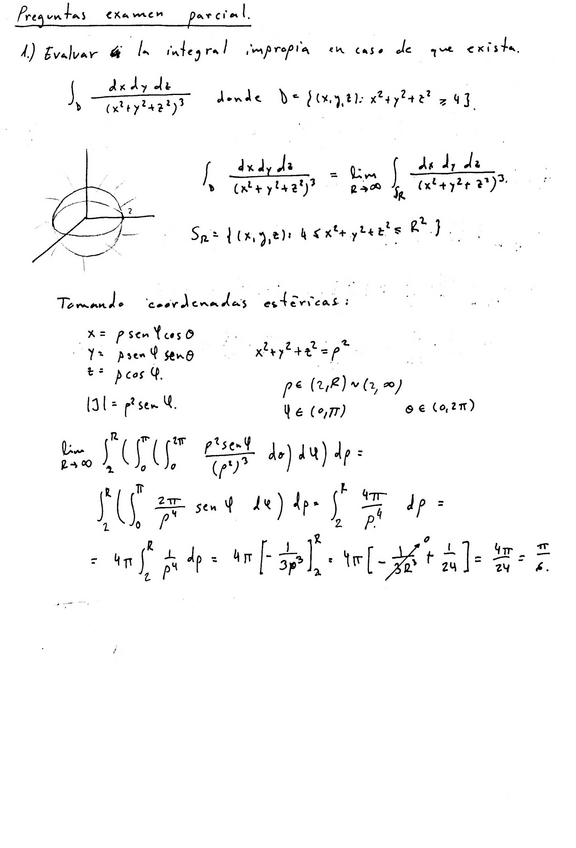 Preguntas examen parcial.
1.) Evaluar la integral impropia en caso de que exista.
∫_D dx dy dz / (x²+y²+z²)³ donde D = {(x,y,z): x²+y²+z² ≥ 4}.
∫_D dx dy dz / (x²+y²+z²)³ = lim_{R→∞} ∫_{S_R} dx dy dz / (x²+y²+z²)³.
2
S_R = {(x,y,z): 4 ≤ x²+y²+z² ≤ R²}.
Tomando coordenadas esféricas:
x = ρ sen φ cos θ
y = ρ sen φ sen θ x²+y²+z² = ρ²
z = ρ cos φ.
ρ ∈ (2,R) ~ (2,∞)
|J| = ρ² sen φ. φ ∈ (0,π) θ ∈ (0,2π)
lim_{R→∞} ∫_2^R (∫_0^π (∫_0^{2π} ρ² sen φ / (ρ²)³ dθ) dφ) dρ =
∫_2^R (∫_0^π 2π/ρ⁴ sen φ dφ) dρ = ∫_2^R 4π/ρ⁴ dρ =
= 4π ∫_2^R 1/ρ⁴ dρ = 4π [-1/3ρ³]_2^R = 4π [-1/3R³ → 0 + 1/24] = 4π/24 = π/6.